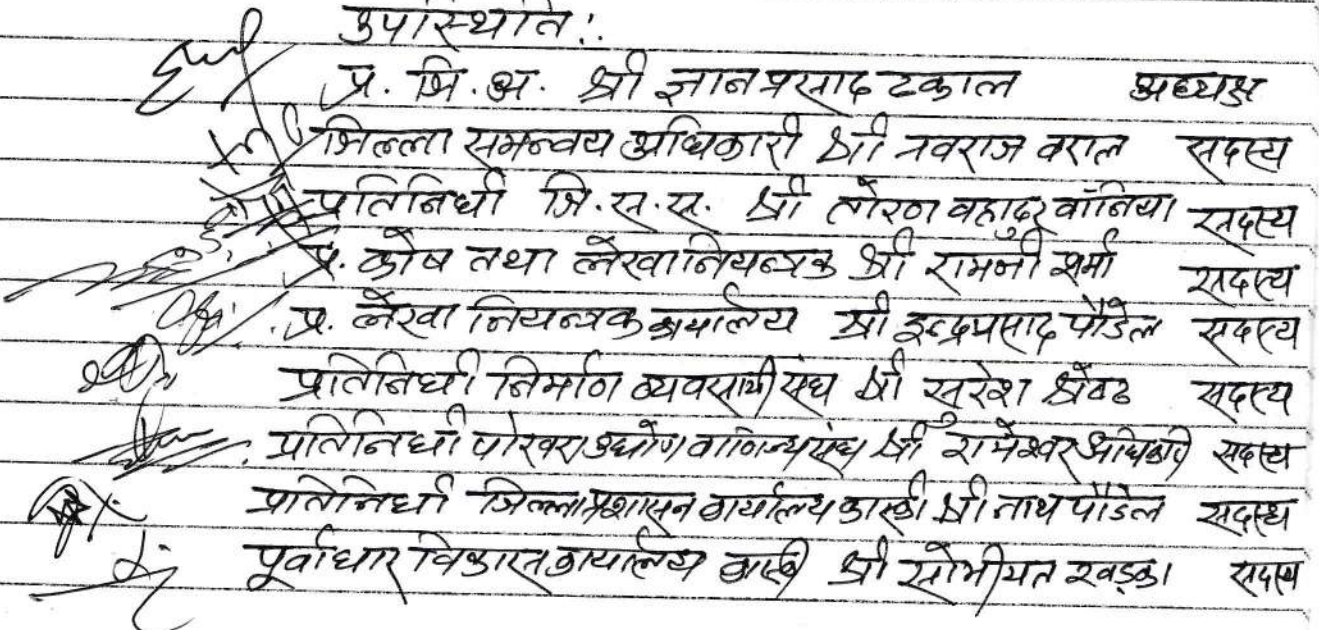 उपस्थिति:
प्र. जि.अ. श्री ज्ञानप्रसाद ढकाल अध्यक्ष
जिल्ला समन्वय अधिकारी श्री नवराज वराल सदस्य
प्रतिनिधी जि.स.स. श्री तोरण वहादुर वानिया सदस्य
प्र. कोष तथा लेखा नियन्त्रक श्री रामजी शर्मा सदस्य
प्र. लेखा नियन्त्रक कार्यालय श्री इन्द्रप्रसाद पौडेल सदस्य
प्रतिनिधी निर्माण व्यवसायी संघ श्री सुरेश श्रेष्ठ सदस्य
प्रतिनिधी पोखरा उद्योग वाणिज्य संघ श्री रामेश्वर अधिकारी सदस्य
प्रतिनिधी जिल्ला प्रशासन कार्यालय कास्की श्री नाथ पौडेल सदस्य
पूर्वाधार विकास कार्यालय कास्की श्री खड्का सदस्य